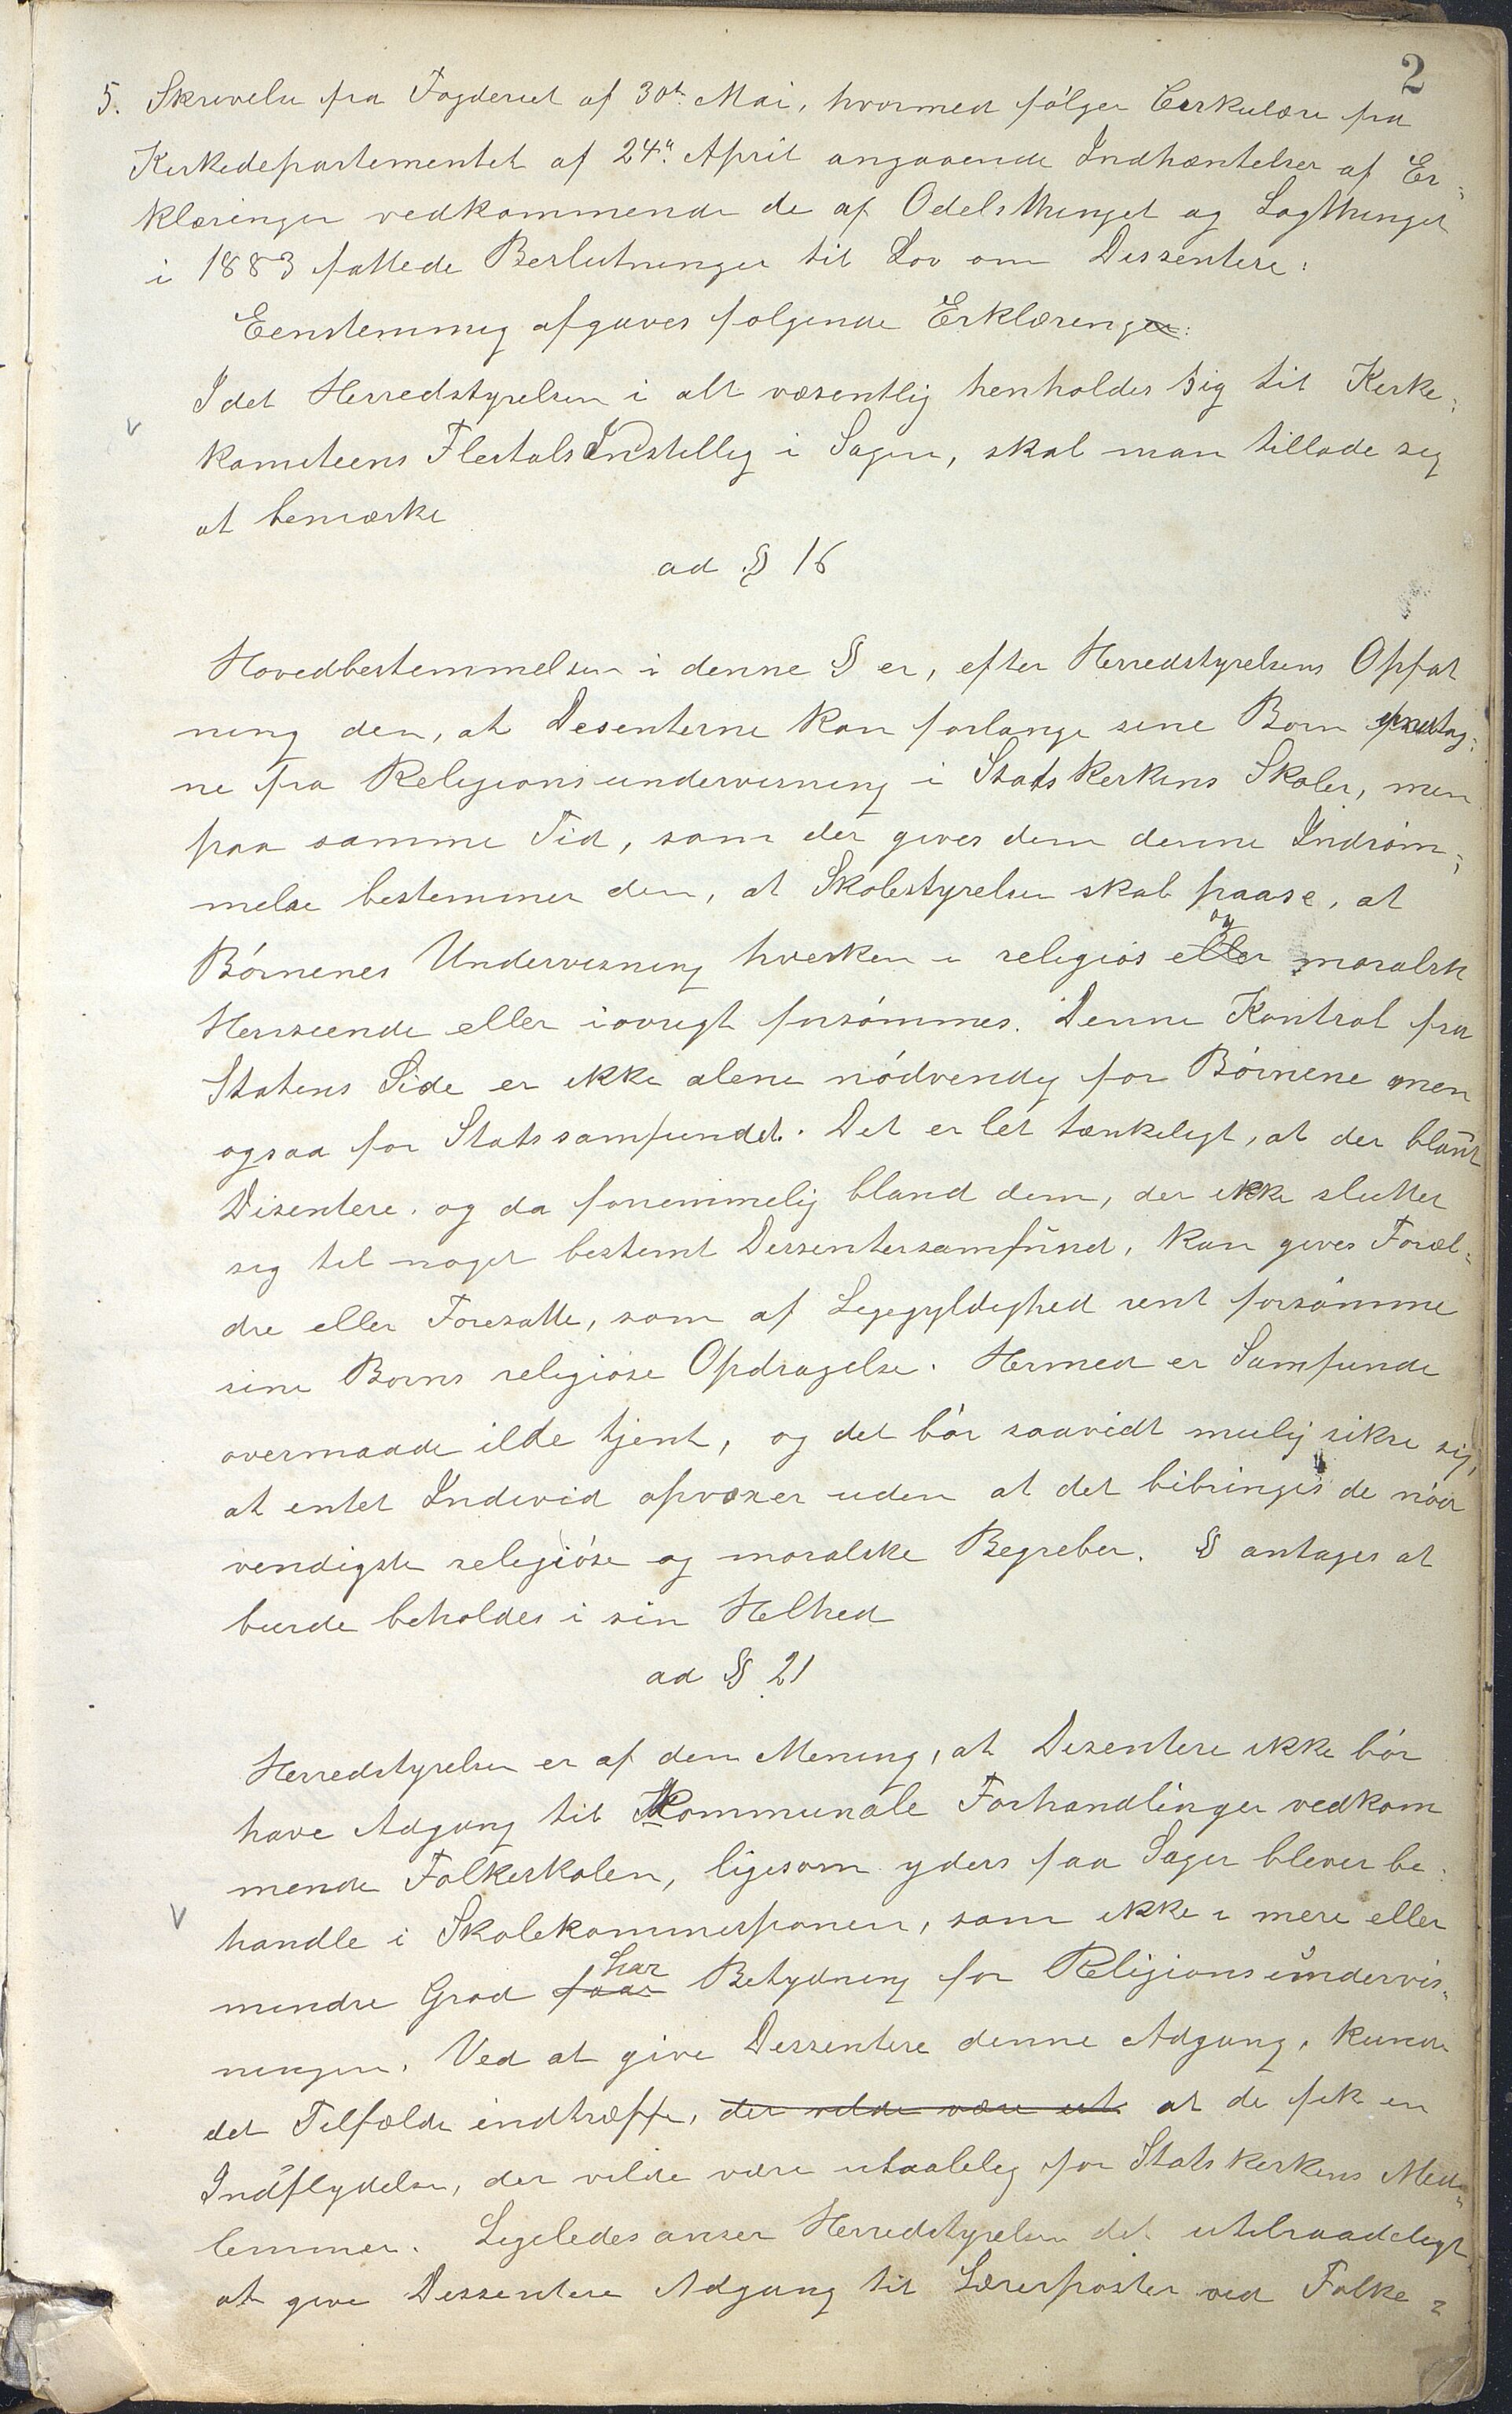 2
5. Skrivelse fra Fogderiet af 30te Mai, hvormed følger Cirkulære fra
Kirkedepartementet af 24de April angaaende Indhæntelser af Er=
klæringer vedkommende de af Odelsthinget og Lagthinget
i 1883 fattede Beslutninger til Lov om Dissentere:
Eenstemmig afgaves følgende Erklæringer:
Idet Herredstyrelsen i alt væsentlig henholder sig til Kirke=
komiteens FlertalsIndstillig i Sagen, skal man tillade sig
at bemærke
ad § 16
Hovedbestemmelsen i denne § er, efter Herredstyrelsens Opfat
ning den, at Desenterne kan forlange sine Børn fritag=
ne fra Religionsundervisning i Statskirkens Skoler, men
paa samme Tid, som der gives dem denne Indrøm=
melse bestemmer den, at Skolestyrelsen skal paase, at
og
Børnenes Undervisning hverken i religiøs eller moralsk
Henseende eller iøvrigt forsømmes. Denne Kontrol fra
Statens Side er ikke alene nødvendig for Børnene men
ogsaa for Statssamfundet. Det er let tænkeligt, at der blant
Disentere, og da fornemmelig bland dem, der ikke slutter
sig til noget bestemt Dissentersamfund, kan gives Foræl=
dre eller Foresatte, som af Ligegyldighed rent forsømme
sine Børns religiøse Opdragelse. Hermed er Samfunde
overmaade ilde tjent, og det bør saavidt mulig sikre sig,
at intet Individ opvoxer uden at det bibringes de nød
vendigste religiøse og moralske Begreber. § antages at
burde beholdes i sin Helhed
ad § 21
Herredstyrelsen er af den Mening, at Disentere ikke bør
have Adgang til Kommunale Forhandlinger vedkom
mende Folkeskolen, ligesom yders faa Sager blever be=
handle i Skolekommisjonen, som ikke i mere eller
har
mindre Grad faar Betydning for Religionsundervis=
ningen. Ved at give Dissentere denne Adgang, kunde
det Tilfælde indtræffe, der vilde være ut at de fik en
Indflydelse, der vilde være utaalelig for Statskirkens Med=
lemmer. Ligeledes anser Herredstyrelsen det utilraadeligt
at give Dissentere Adgang til Lærerposter ved Folke=